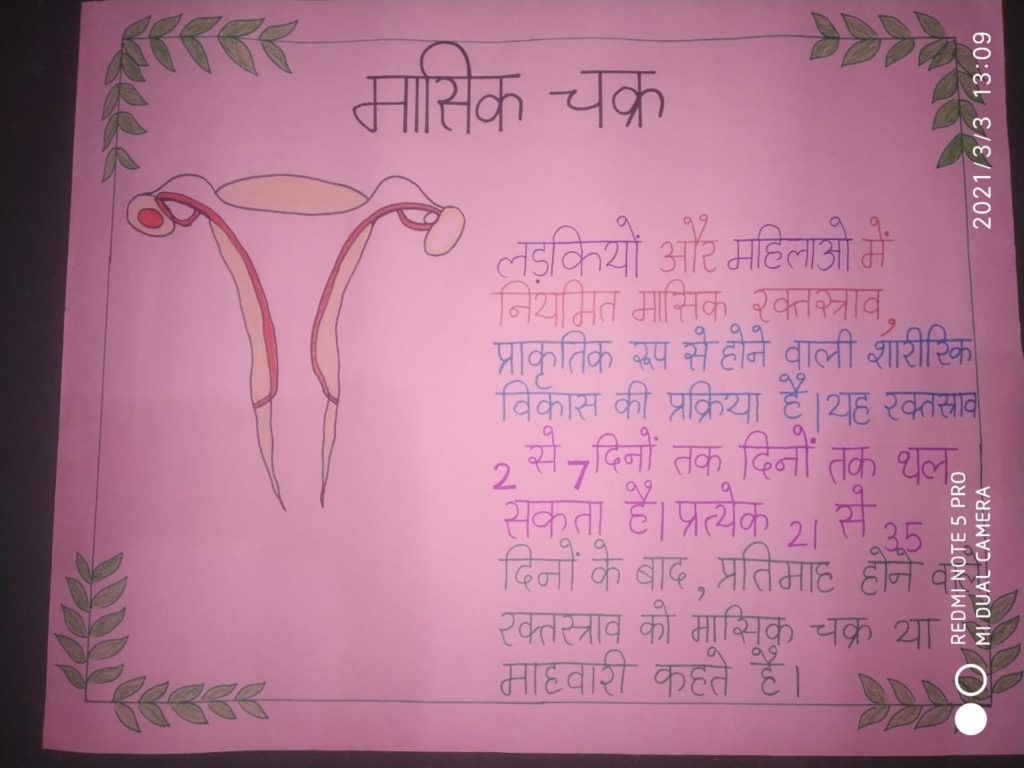 मासिक चक्र
लड़कियों और महिलाओ में
नियमित मासिक रक्तस्त्राव,
प्राकृतिक रूप से होने वाली शारीरिक
विकास की प्रक्रिया है। यह रक्तस्त्राव
2 से 7 दिनों तक दिनों तक थल
सकता है। प्रत्येक 21 से 35
दिनों के बाद, प्रतिमाह होने वाले
रक्तस्त्राव को मासिक चक्र या
माहवारी कहते है।
2021/3/3 13:09
REDMI NOTE 5 PRO
MI DUAL CAMERA